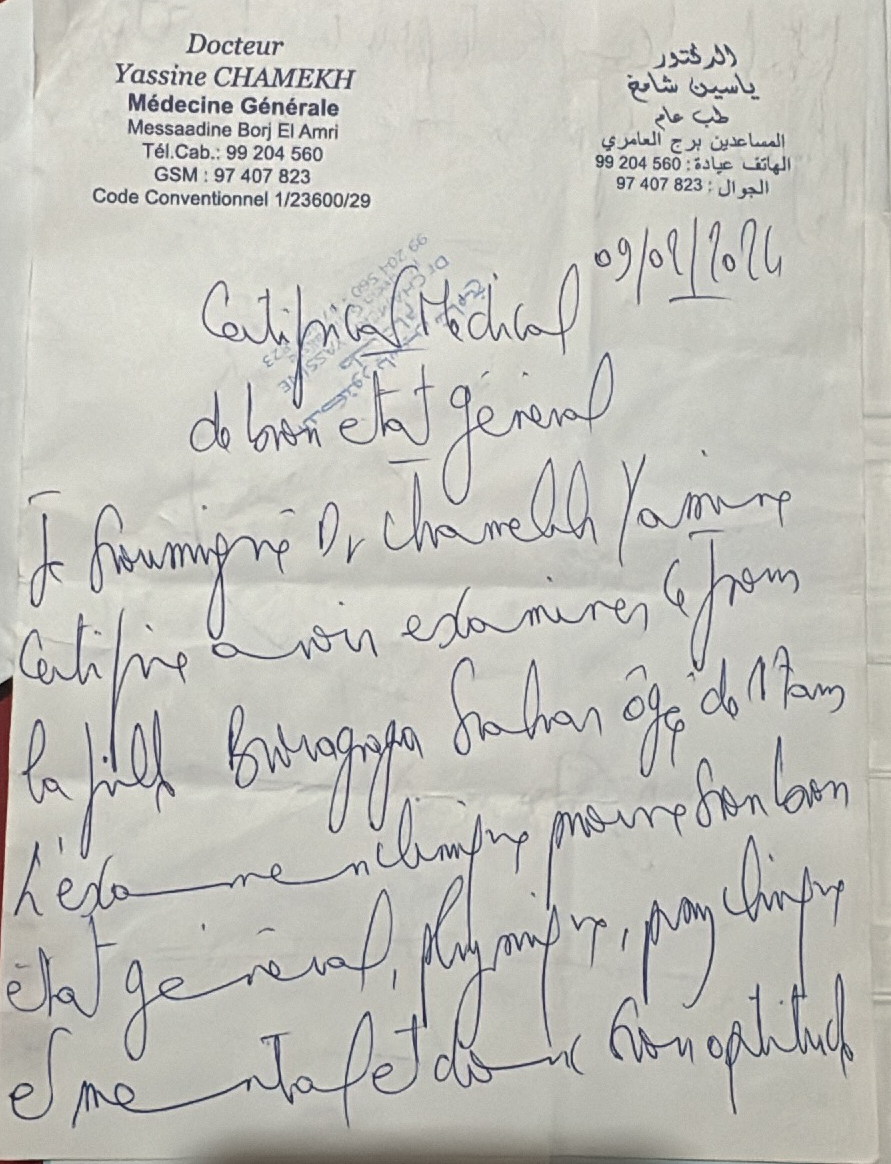 Docteur
Yassine CHAMEKH
Médecine Générale
Messaadine Borj El Amri
Tél.Cab.: 99 204 560
GSM : 97 407 823
Code Conventionnel 1/23600/29
الدكتور
ياسين شامخ
طب عام
المساعدين برج العامري
الهاتف عيادة : 560 204 99
الجوال : 823 407 97
Certificat Médical
de bon état général
Je soussigné Dr Chamekh Yassine
Certifie avoir examiner ce jour
la fille âgé de 17 ans
L'examen clinique prouve son bon
état général, physique, psychique
et mental et donc son aptitude